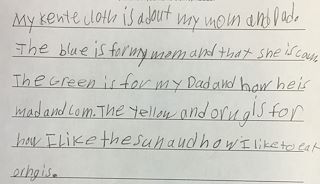 My kente cloth is about my mom and Dad.
The blue is for my mom and that she is com
The Green is for my Dad and how he is
mad and com. The Yellow and orng is for
how I like the sun and how I like to eat
orngis.